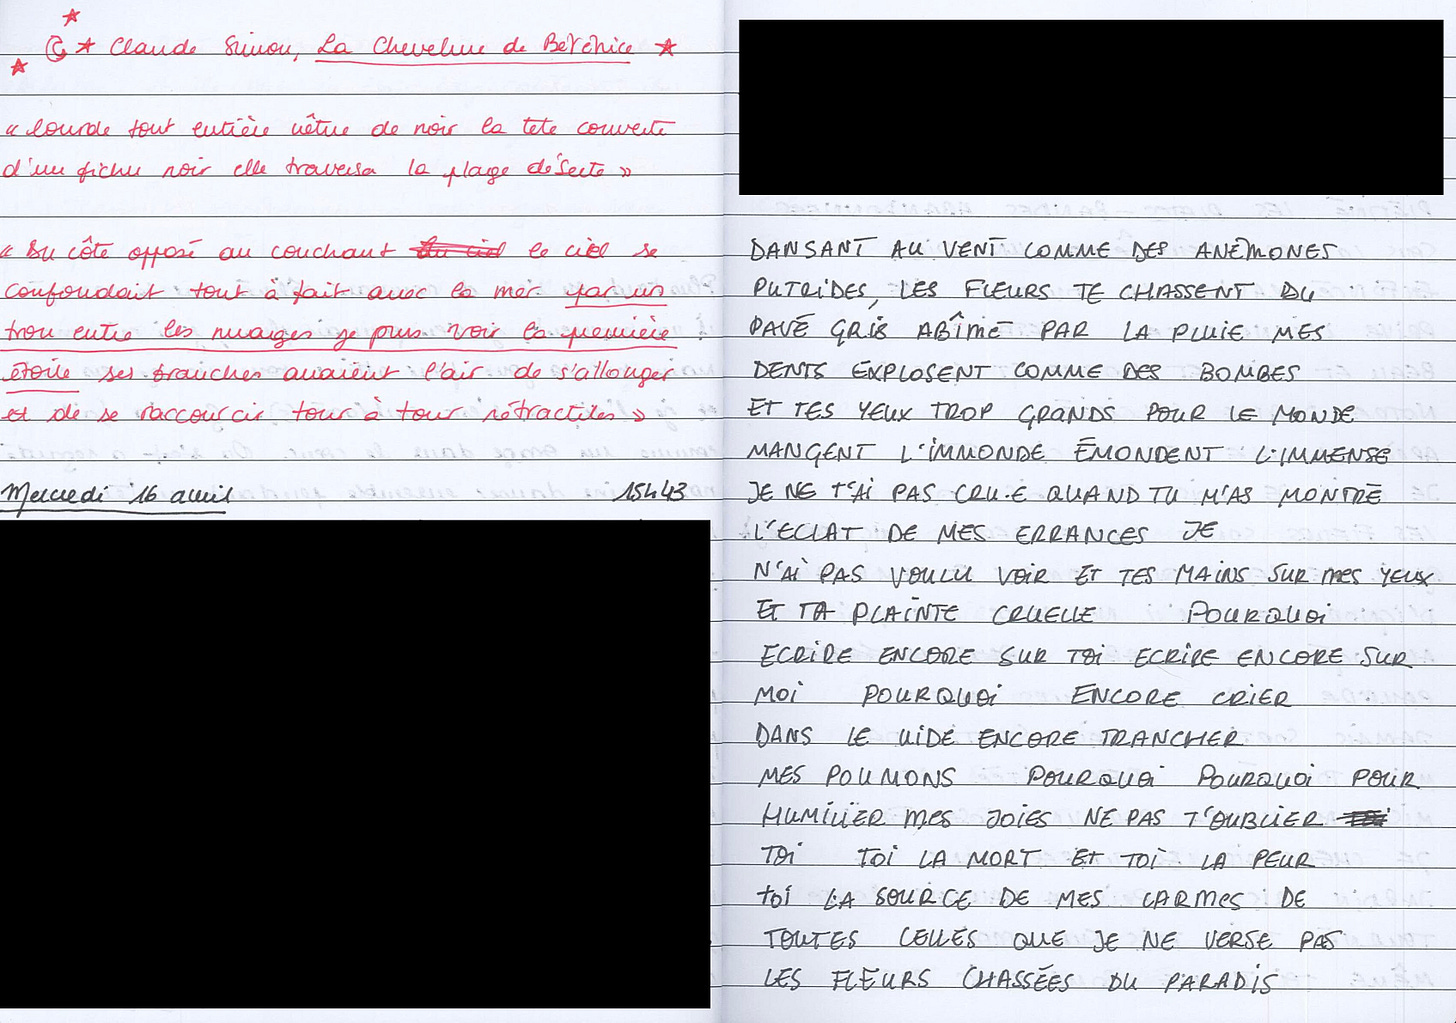 Claude Simon, La Chevelure de Bérénice
« lourde tout entière vêtue de noir la tête couverte
d'un fichu noir elle traversa la plage déserte »
« Du côté opposé au couchant le ciel se
confondait tout à fait avec la mer par un
trou entre les nuages je pus voir la première
étoile ses branches avaient l'air de s'allonger
et de se raccourcir tour à tour rétractiles »
Mercredi 16 avril 15h43
DANSANT AU VENT COMME DES ANÉMONES
PUTRIDES, LES FLEURS TE CHASSENT DU
PAVÉ GRIS ABÎMÉ PAR LA PLUIE MES
DENTS EXPLOSENT COMME DES BOMBES
ET TES YEUX TROP GRANDS POUR LE MONDE
MANGENT L'IMMONDE ÉMONDENT L'IMMENSE
JE NE T'AI PAS CRU·E QUAND TU M'AS MONTRÉ
L'ECLAT DE MES ERRANCES JE
N'AI PAS VOULU VOIR ET TES MAINS SUR MES YEUX
ET TA PLAINTE CRUELLE POURQUOI
ECRIRE ENCORE SUR TOI ECRIRE ENCORE SUR
MOI POURQUOI ENCORE CRIER
DANS LE VIDE ENCORE TRANCHER
MES POUMONS POURQUOI POURQUOI POUR
HUMILIER MES JOIES NE PAS T'OUBLIER
TOI TOI LA MORT ET TOI LA PEUR
TOI LA SOURCE DE MES LARMES DE
TOUTES CELLES QUE JE NE VERSE PAS
LES FLEURS CHASSÉES DU PARADIS